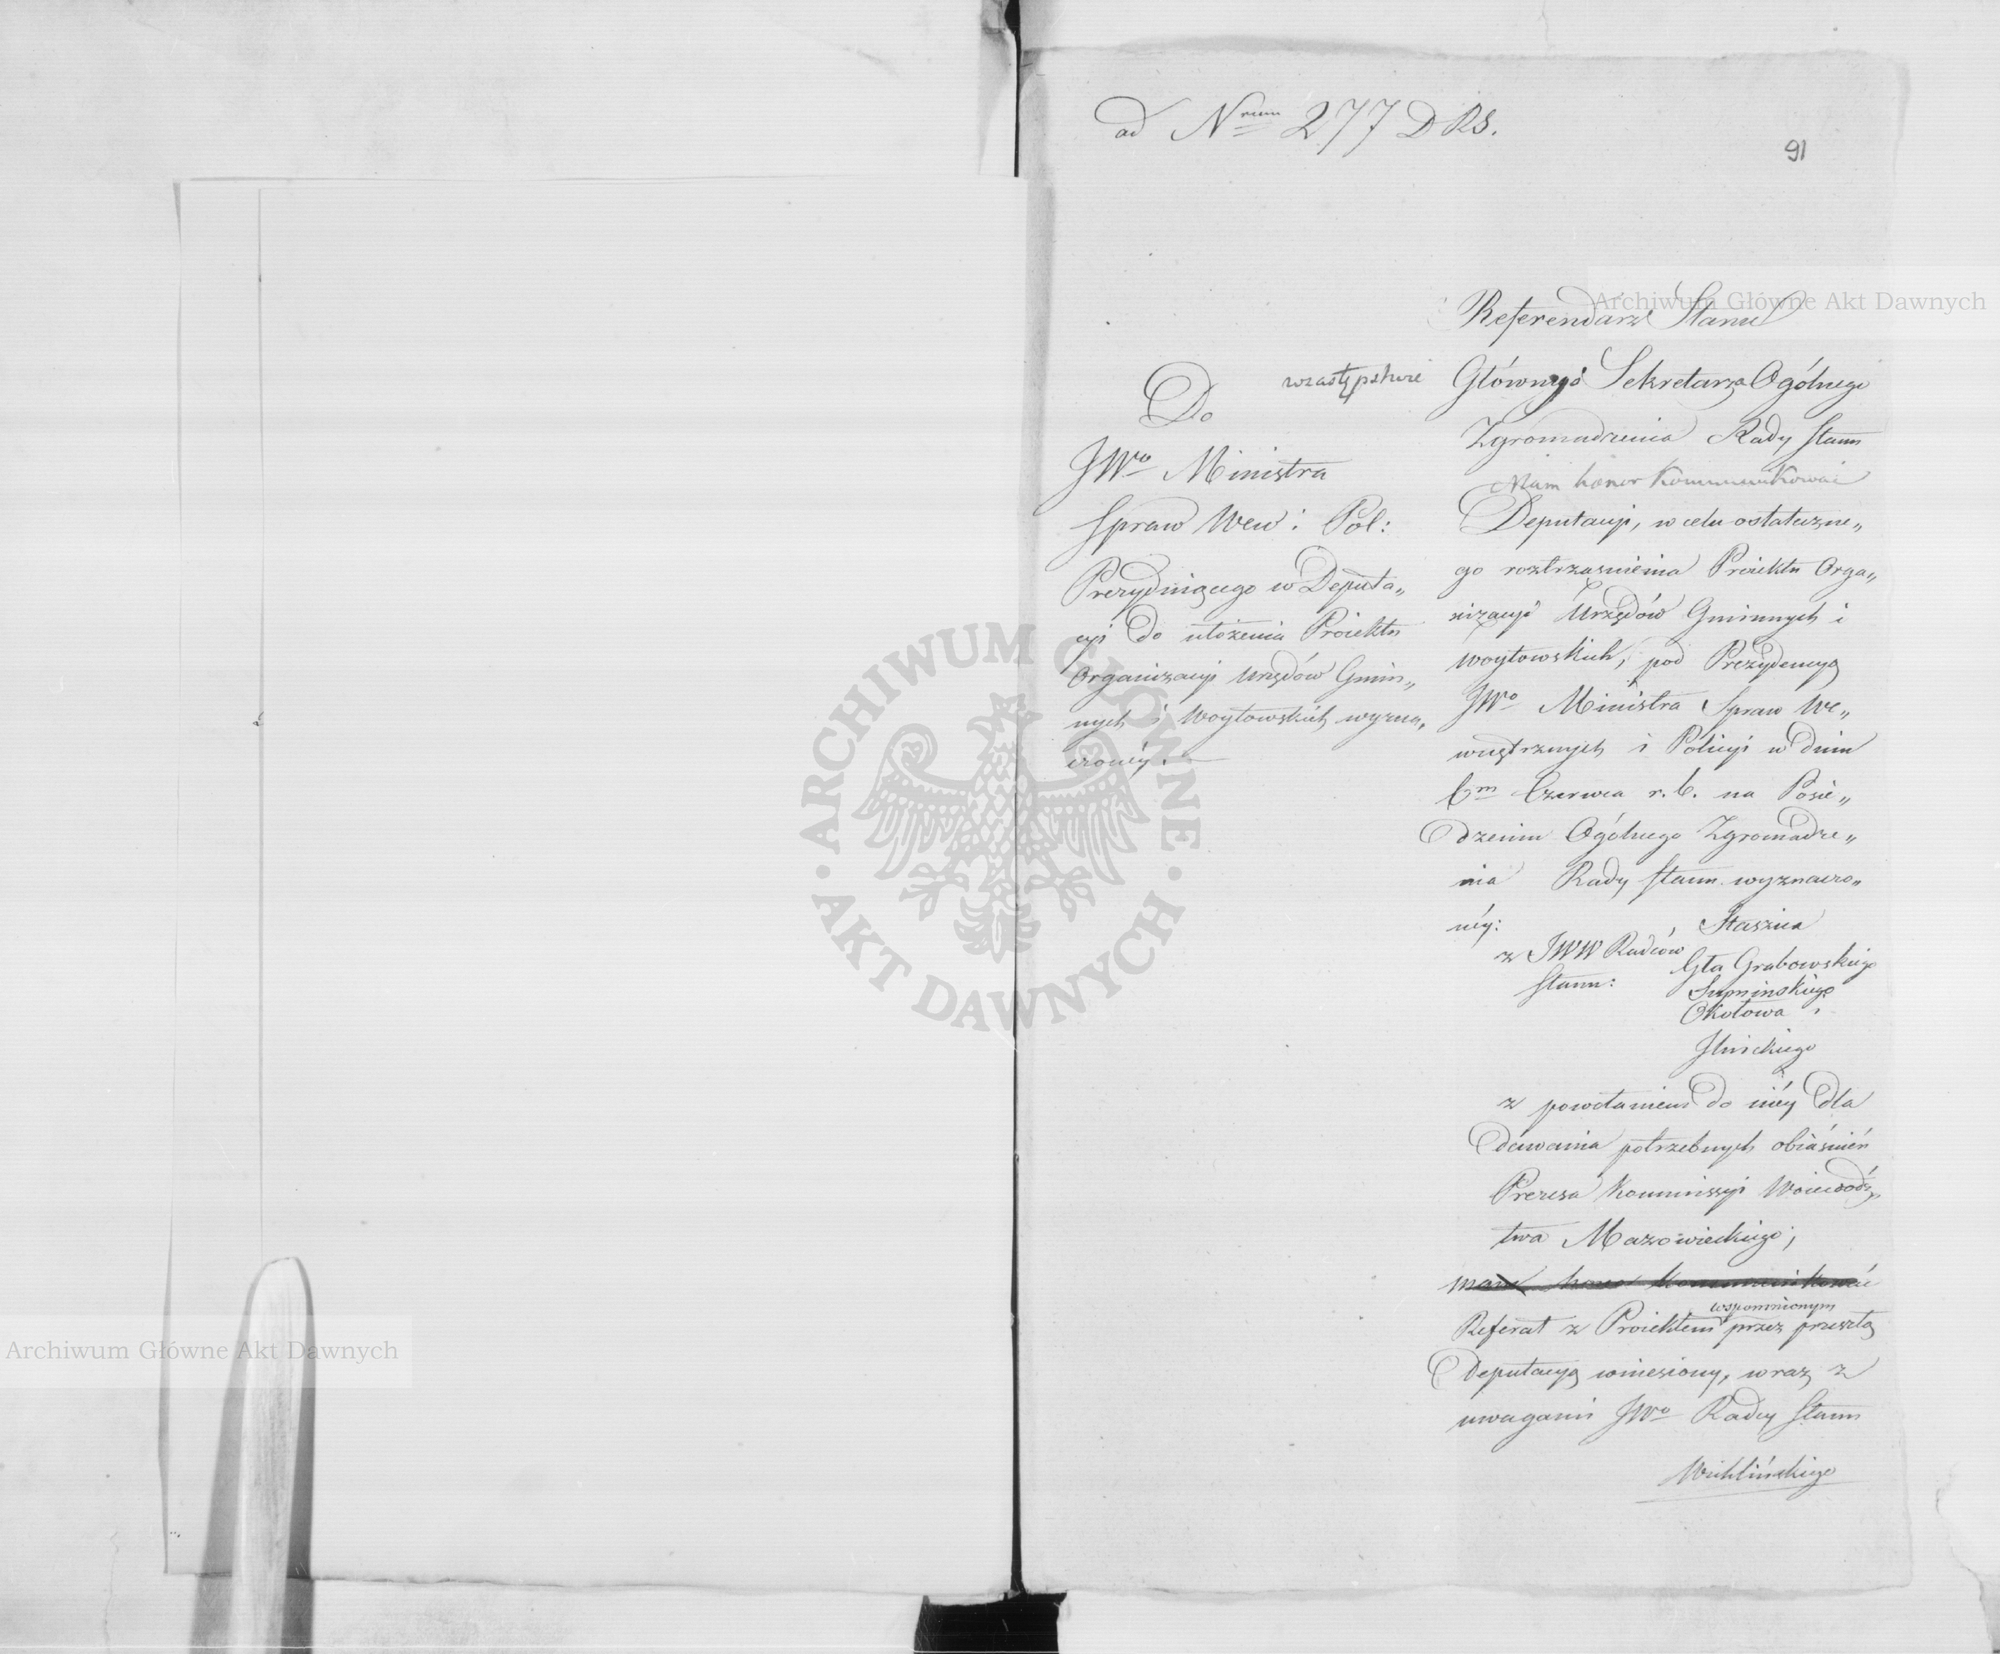 ad Nrum 277 DRS.
91
Referendarz Stanu
w zastępstwie Głównego Sekretarza Ogólnego
Zgromadzenia Rady Stanu
Do
JWo Ministra
Spraw Wew: Pol:
Prezyduiącego w Deputa„
cyi do ułożenia Proiektu
Organizacyi Urzędów Gmin„
nych i Woytowskich wyzna„
czoney.
Mam honor Kommunikować
Deputacyi, w celu ostateczne„
go roztrząśnienia Proiektu Orga„
nizacyi Urzędów Gminnych i
Woytowskich, pod Prezydencyą
JWo Ministra Spraw We„
wnętrznych i Policyi w dniu
6m Czerwca r. b. na Posie„
dzeniu Ogólnego Zgromadze„
nia Rady Stanu wyznaczo„
néy:
z JWW Radców
Stanu:
Staszica
Gła Grabowskiego
Sumińskiego
Okołowa,
Ilnickiego
z powołaniem do niéy dla
dawania potrzebnych obiaśnień
Prezesa Kommissyi Woiewódz„
twa Mazowieckiego;
mam honor Kommunikować
wspomnionym
Referat z Proiektem przez przeszłą
Deputacyą wniesiony, wraz z
uwagami JWo Radcy Stanu
Wichlińskiego
Archiwum Główne Akt Dawnych
Archiwum Główne Akt Dawnych
ARCHIWUM GŁÓWNE
AKT DAWNYCH